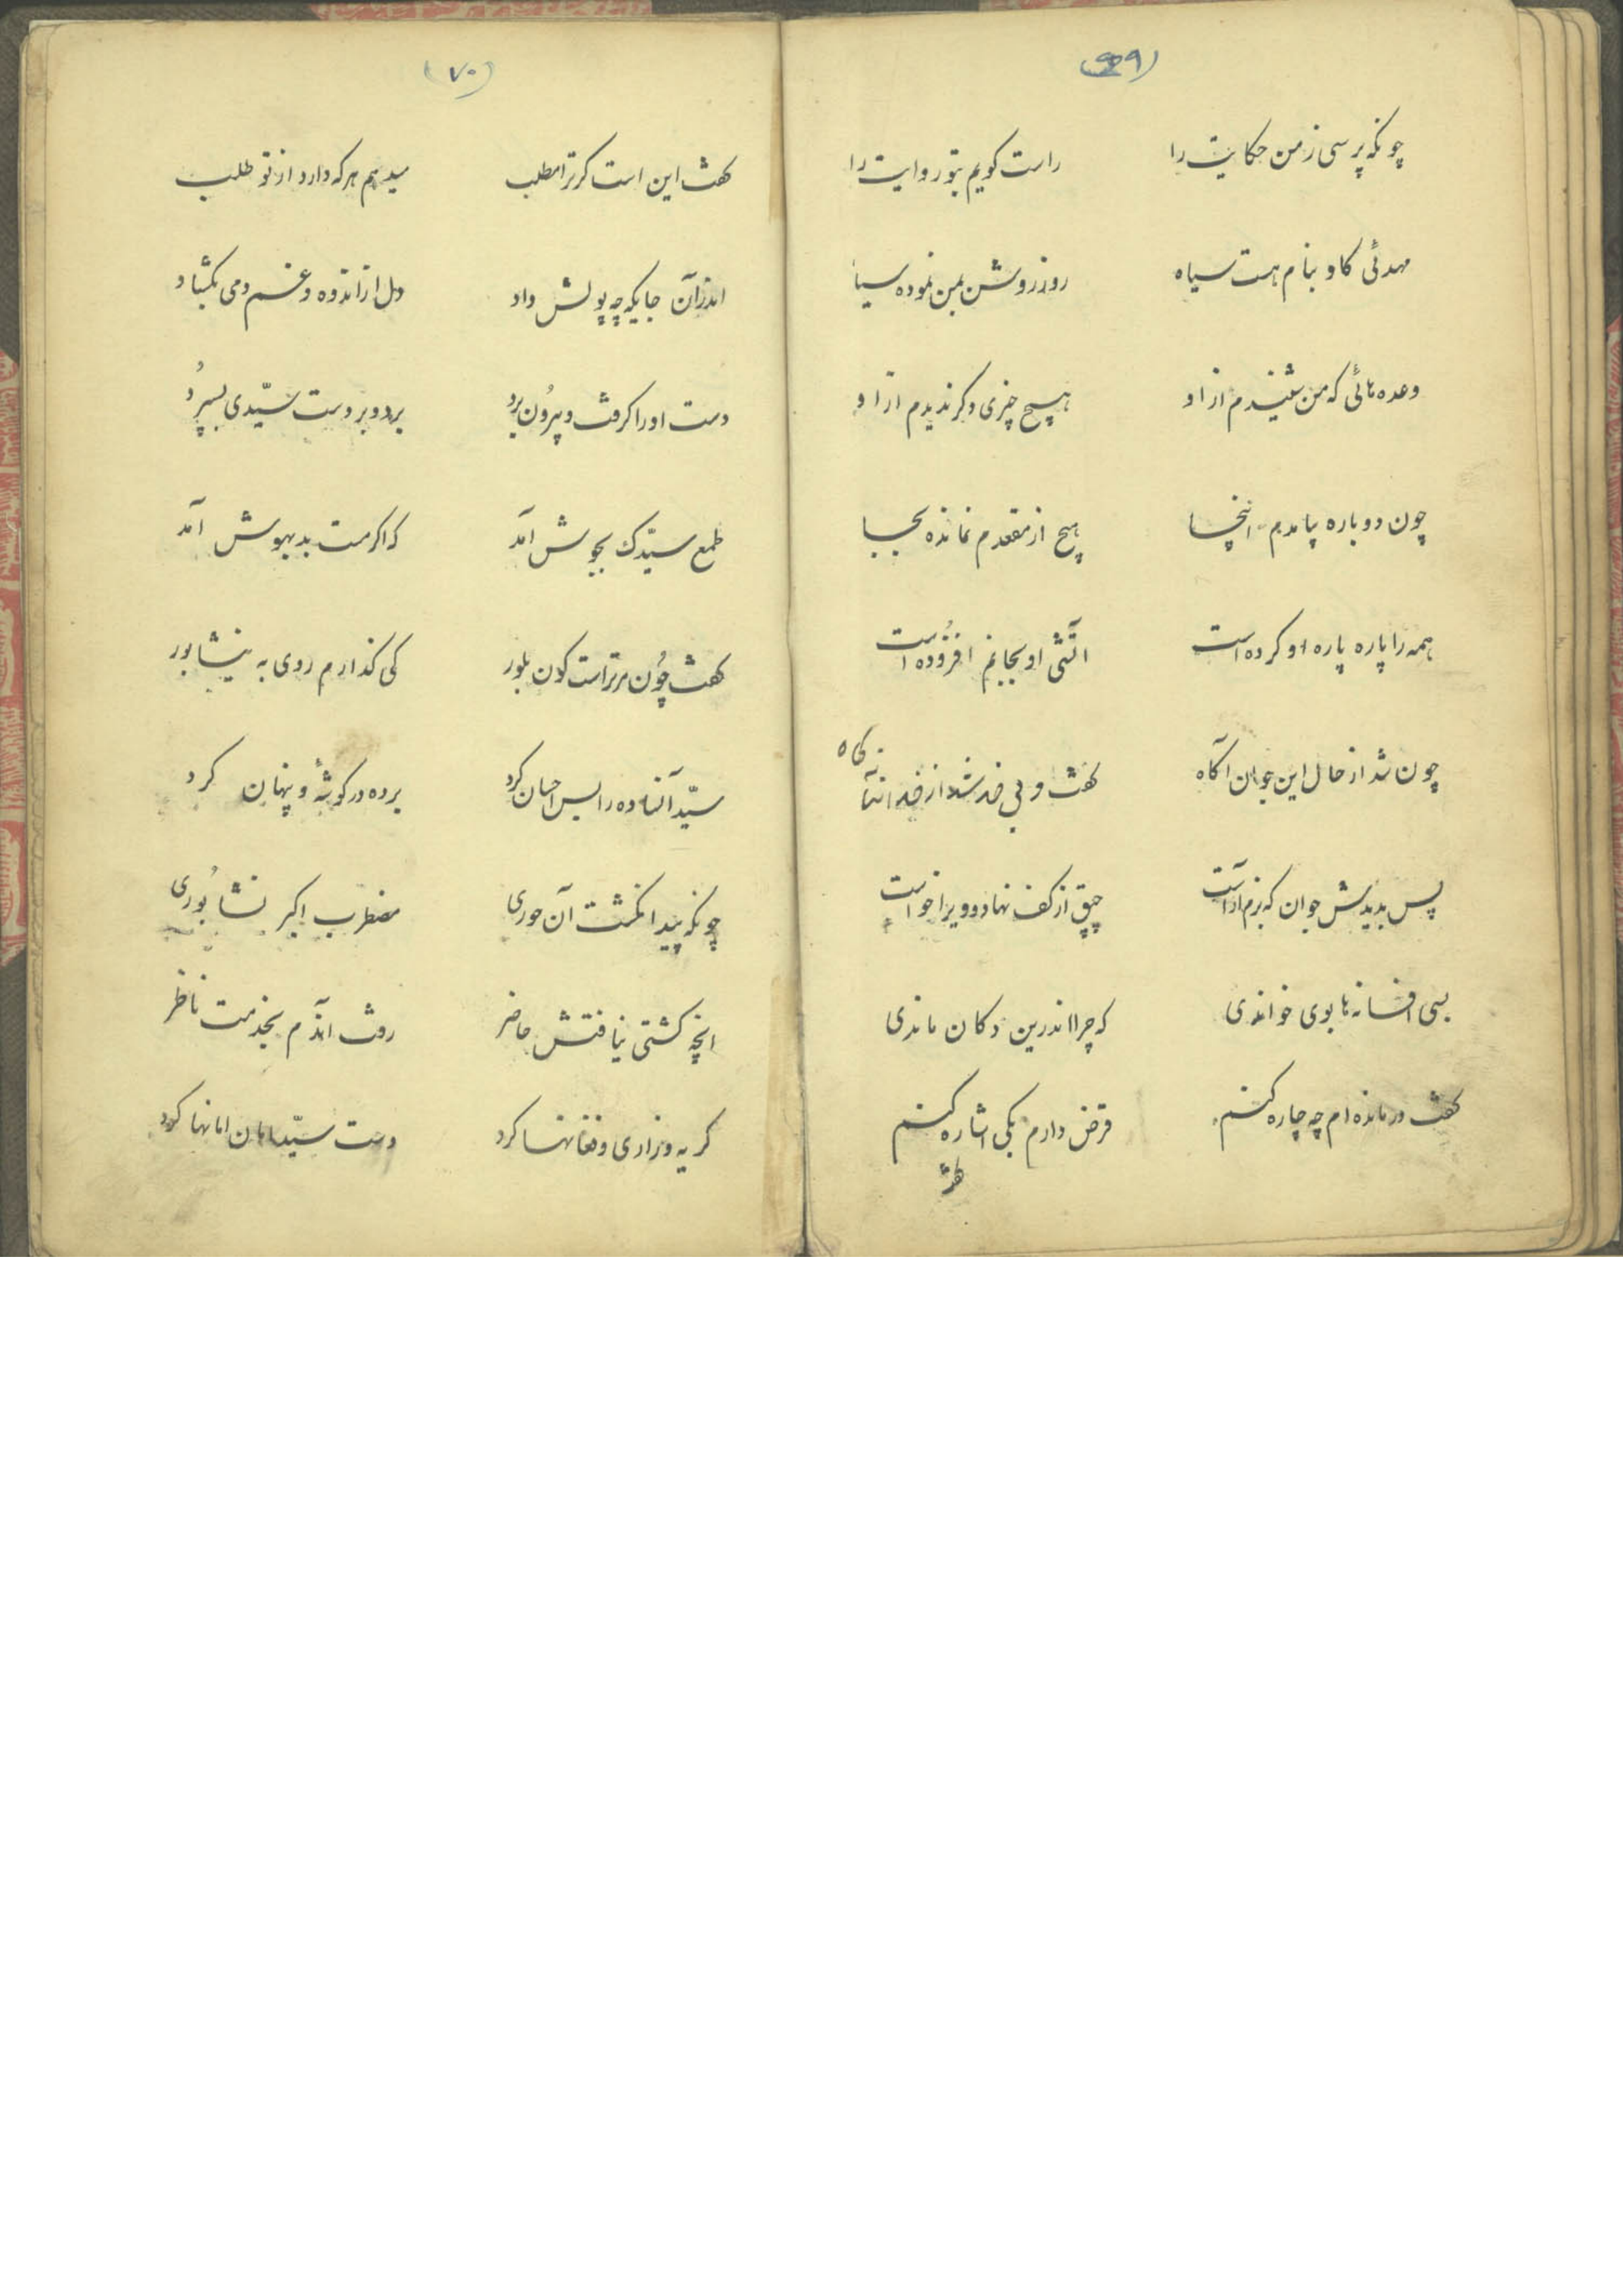 (۶۹)
چونکه پرسی ز من حکایت را راست کویم بتو روایت را
مهدئی کاو بنام هست سیاه روز روشن بمن نموده سیاه
وعده هائی که من شنیدم از او هیچ چیزی دکر ندیدم از او
چون دوباره بیامدم اینجا هیچ از مقعدم نمانده بجا
همه را پاره پاره او کرده است آتشی او بجانم افزوده است
چون شد از حال این جوان آکاه کفت و بی خود شد از خدا ناکاه
پس بدیدش جوان که بزم آراست چپق از کف نهاد و ویرا خواست
بسی افسانه ها بوی خواندی که چرا اندرین دکان ماندی
کفت درمانده ام چه چاره کنم قرض دارم یکی اشاره کنم
کفت
(۷۰)
کفت این است کر ترا مطلب میدهم هر که دارد از تو طلب
اندر آن جایکه چه پولش داد دل از اندوه و غم دمی بکشاد
دست او را کرفت و بیرون برد برد و بر دست سیّدی بسپرد
طمع سیّدک بجوش آمد که اکر مست بد بهوش آمد
کفت چون مر تراست کون بلور کی کذارم روی به نیشابور
سیّد آنساده را بس احسان کرد برده در کوشهٔ و پنهان کرد
چونکه پیدا نکشت آن حوری مضطرب اکبر نشابوری
انچه کشتی نیافتش حاضر رفت آندم بخدمت ناظر
کریه و زاری و فغانها کرد دست سیّد امان امانها کرد